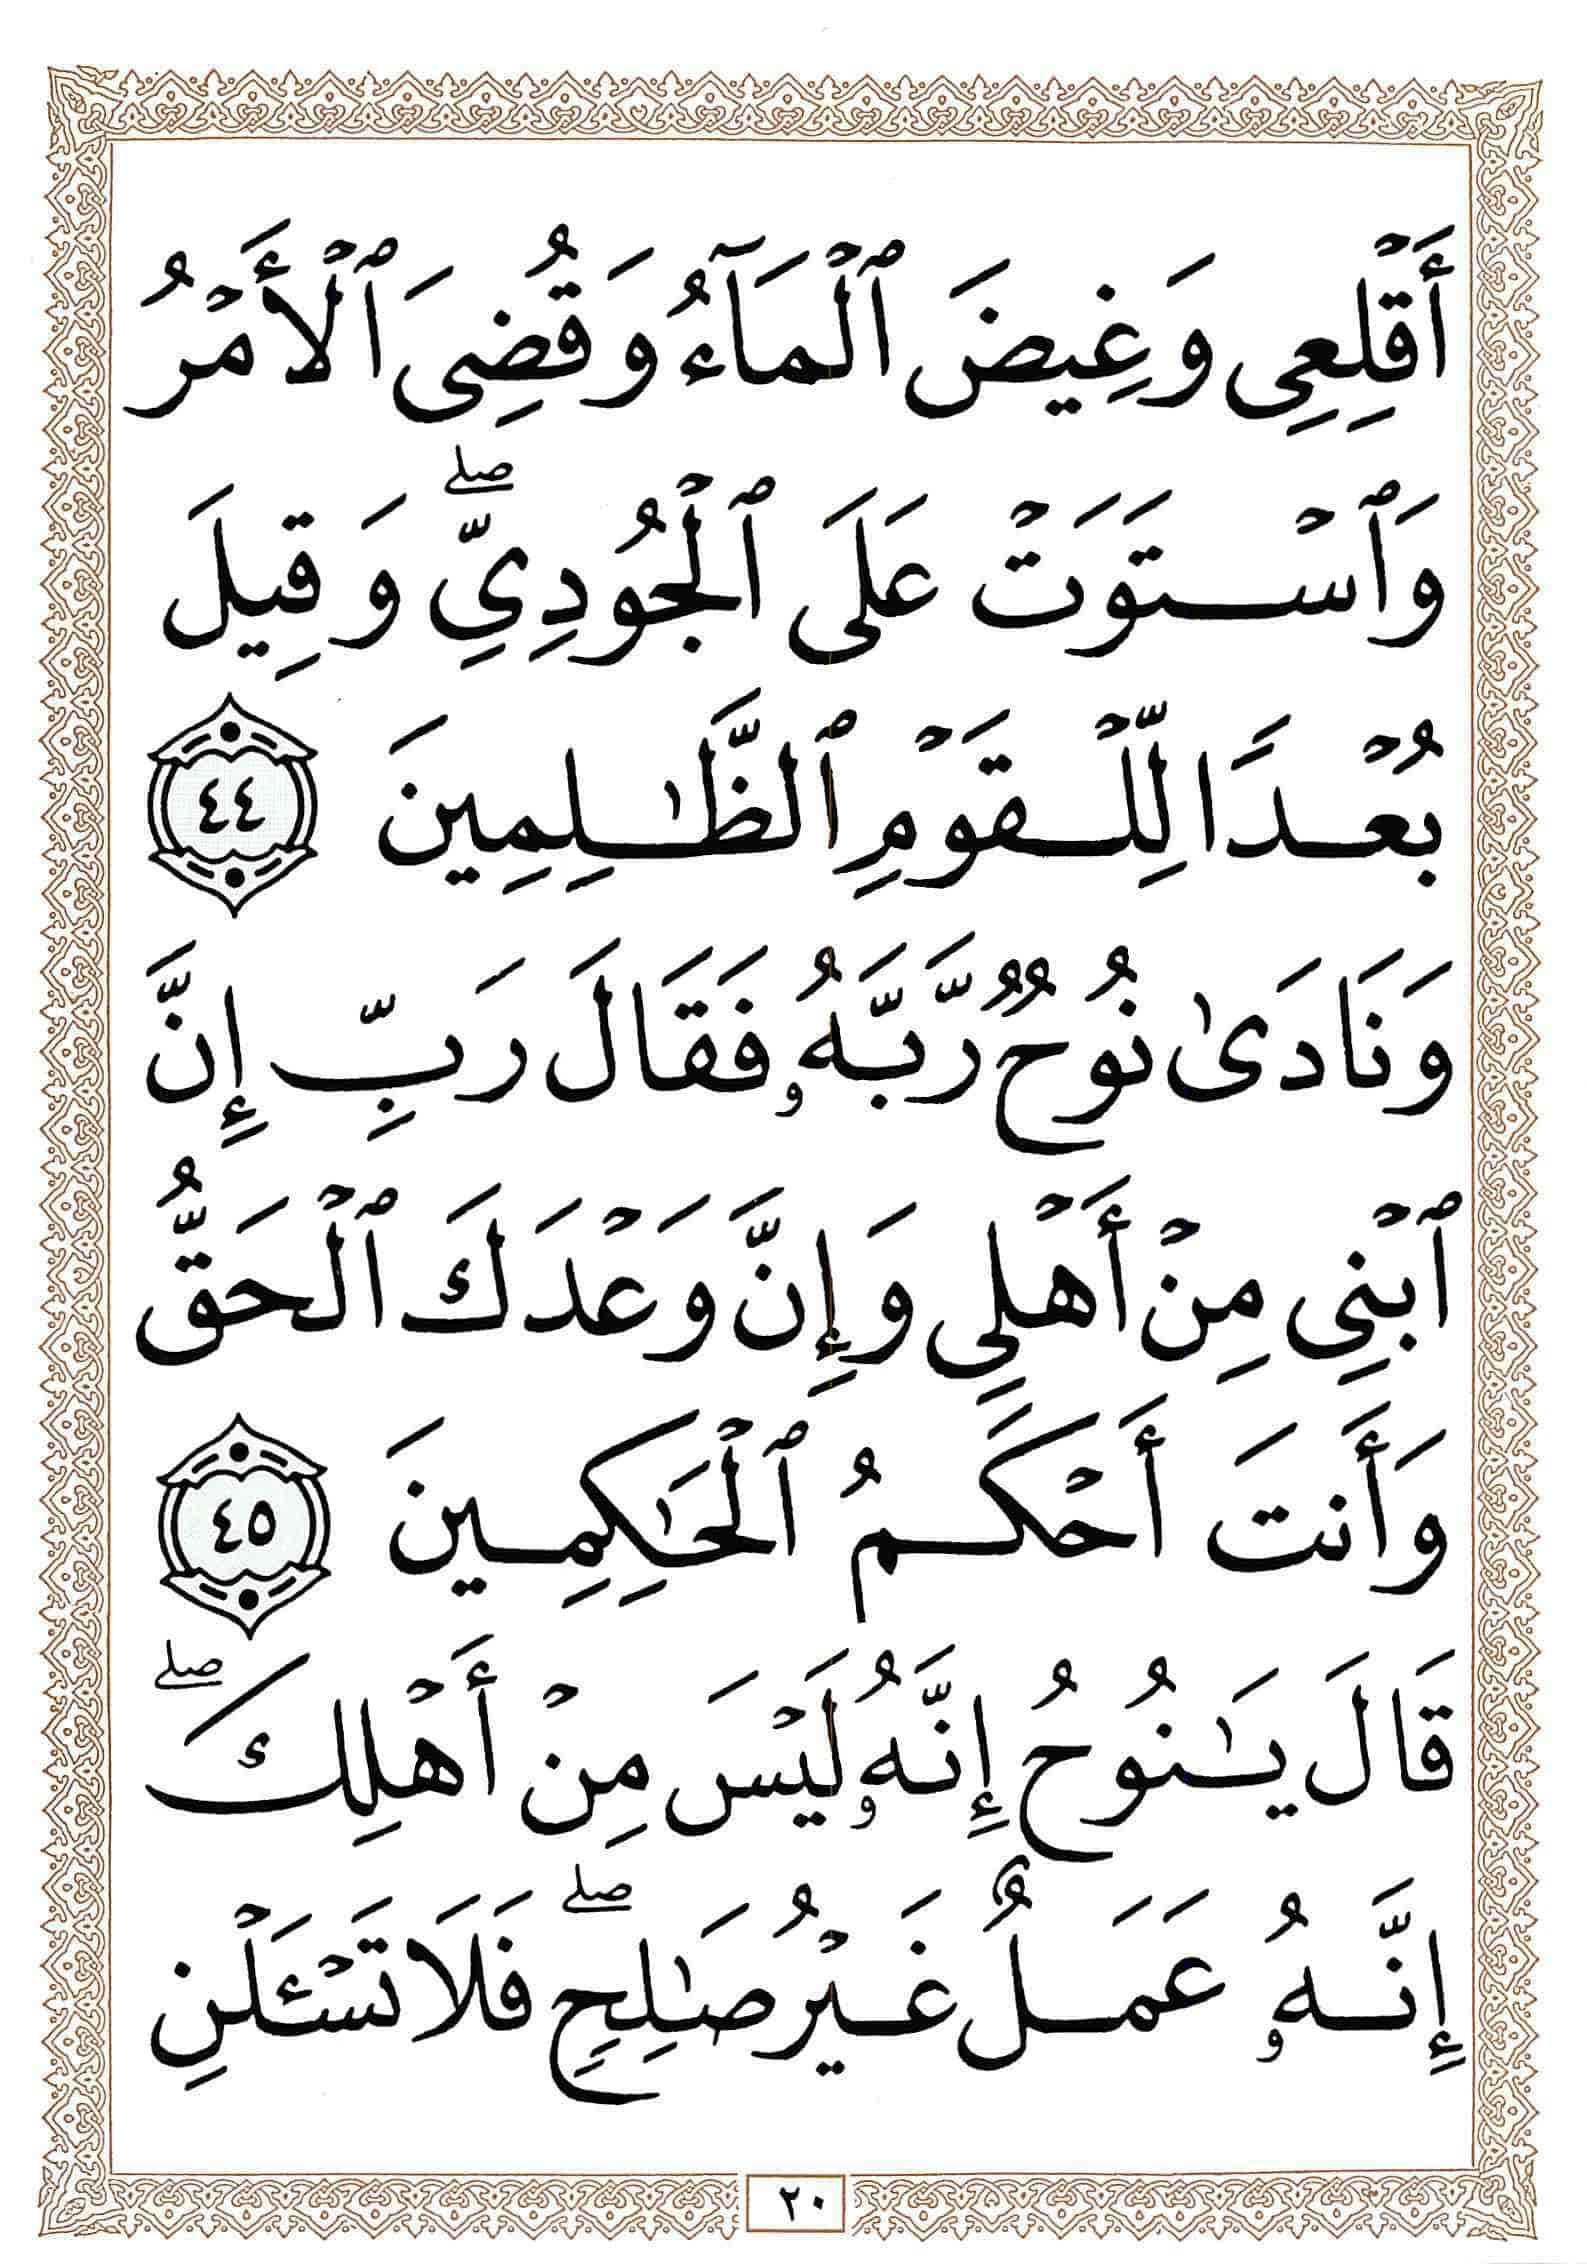 أَقْلِعِى وَغِيضَ ٱلْمَآءُ وَقُضِىَ ٱلْأَمْرُ
وَٱسْتَوَتْ عَلَى ٱلْجُودِىِّۖ وَقِيلَ
بُعْدًا لِّلْقَوْمِ ٱلظَّٰلِمِينَ ٤٤
وَنَادَىٰ نُوحٌ رَّبَّهُۥ فَقَالَ رَبِّ إِنَّ
ٱبْنِى مِنْ أَهْلِى وَإِنَّ وَعْدَكَ ٱلْحَقُّ
وَأَنتَ أَحْكَمُ ٱلْحَٰكِمِينَ ٤٥
قَالَ يَٰنُوحُ إِنَّهُۥ لَيْسَ مِنْ أَهْلِكَۖ
إِنَّهُۥ عَمَلٌ غَيْرُ صَٰلِحٍۖ فَلَا تَسْـَٔلْنِ
٢٠